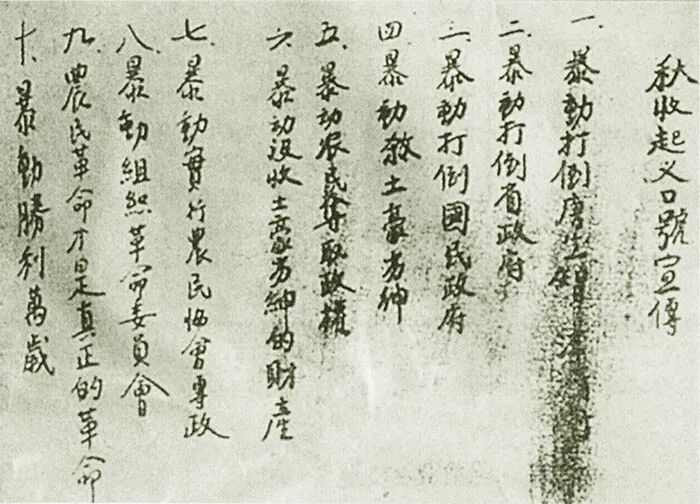 秋收起义口號宣傳
一、暴動打倒唐生智
二、暴動打倒省政府
三、暴動打倒國民政府
四暴動殺土豪劣紳
五、暴动农民奪取政權
六、暴动没收土豪劣紳的財產
七、暴動實行農民協會專政
八、暴動組織革命委員會
九、農民革命才是真正的革命
十、暴動勝利萬歲